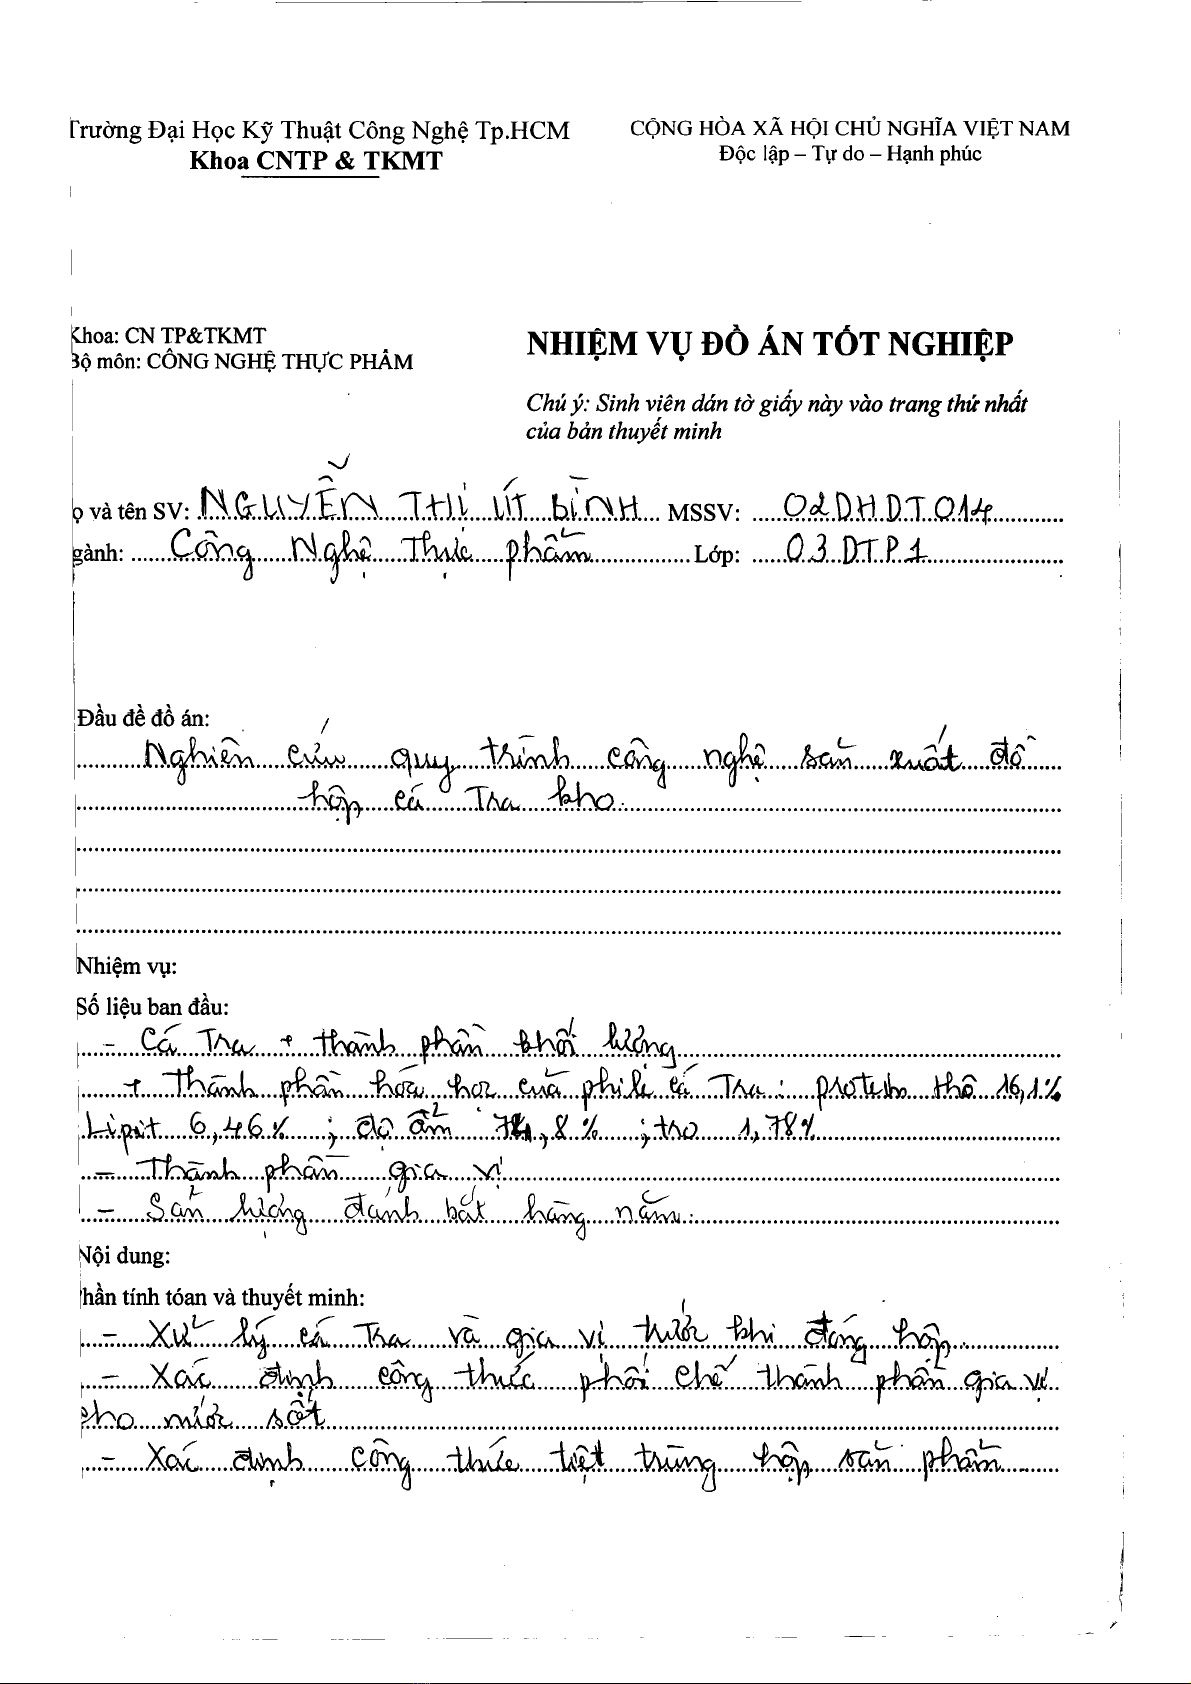 Trường Đại Học Kỹ Thuật Công Nghệ Tp.HCM
Khoa CNTP & TKMT
CỘNG HÒA XÃ HỘI CHỦ NGHĨA VIỆT NAM
Độc lập – Tự do – Hạnh phúc
Khoa: CN TP&TKMT
Bộ môn: CÔNG NGHỆ THỰC PHẨM
NHIỆM VỤ ĐỒ ÁN TỐT NGHIỆP
Chú ý: Sinh viên dán tờ giấy này vào trang thứ nhất
của bản thuyết minh
ọ và tên SV: NGUYỄN THỊ ÚT BÌNH MSSV: 02DHDT014
gành: Công Nghệ Thực phẩm Lớp: 03DTP1
Đầu đề đồ án:
Nghiên cứu quy trình công nghệ sản xuất đồ
hộp cá Tra kho.
Nhiệm vụ:
Số liệu ban đầu:
- Cá Tra + thành phần khối lượng
+ Thành phần hóa học của phi lê cá Tra : protein thô 16,1%
Lipit 6,46% ; độ ẩm 74,8% ; tro 1,78%
- Thành phần gia vị
- Sản lượng đánh bắt hằng năm.
Nội dung:
hần tính tóan và thuyết minh:
- Xử lý cá Tra và gia vị trước khi đóng hộp.
- Xác định công thức phối chế thành phần gia vị
cho nước sốt
- Xác định công thức tiệt trùng hộp sản phẩm